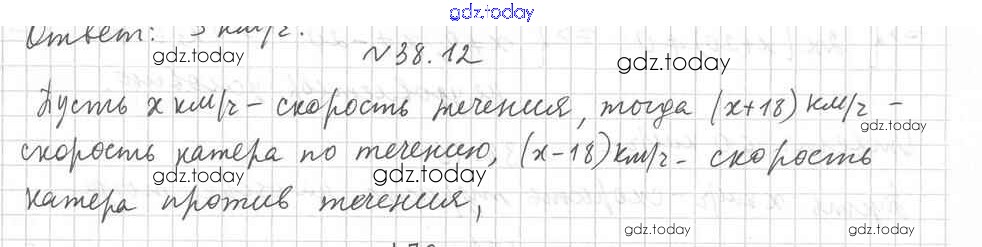 gdz.today
Ответ: 3 км/ч.
gdz.today
№38.12
gdz.today
Пусть х км/ч - скорость течения, тогда (х+18) км/ч -
gdz.today
скорость катера по течению, (х-18) км/ч - скорость
gdz.today
gdz.today
катера против течения,
gdz.today